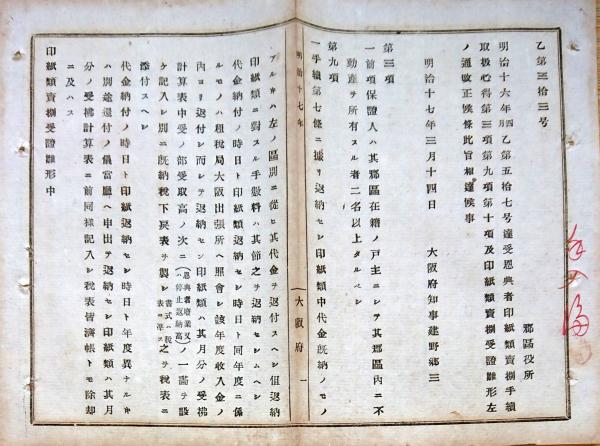 乙第三拾三号
郡區役所
明治十六年四月乙第五拾七号達受恩典者印紙類賣捌手續
取扱心得第三項第九項第十項及印紙類賣捌受證雛形左
ノ通改正候條此旨相達候事
明治十七年三月十四日
大阪府知事建野郷三
第三項
一前項保證人ハ其郡區在籍ノ戸主ニシテ其郡區內ニ不
動產ヲ所有スル者二名以上タルベシ
第九項
一手續第七條ニ據リ返納セシ印紙類中代金旣納ノモノ
明治十七年
大阪府
一
アルキハ左ノ區別ニ從ヒ其代金ヲ返付スヘシ但返納
印紙類ニ對スル手數料ハ其節之ヲ返納セシムヘシ
代金納付ノ時日ト印紙類返納セシ時日ト同年度ニ係
ルモノハ租稅局大阪出張所ヘ照會シ該年度收入金ノ
內ヨリ返付シ而シテ返納セシ印紙類ハ其月分ノ受拂
計算表中受ノ部受取高ノ次ニ(恩典者廢業又ハ停止返納高)ノ一廉ヲ設
ケ記入シ別ニ旣納稅下戻表ヲ製シ書式ハ稅表ニ準ス之ヲ稅表ニ
添付スヘシ
代金納付ノ時日ト印紙類返納セシ時日ト年度異ナルキ
ハ別途還付ノ儀當廳ヘ申出ヲ返納セシ印紙類ハ其月
分ノ受拂計算表ニ前同樣記入シ稅表皆濟帳トモ除却
ニ及ハス
印紙類賣捌受證雛形中